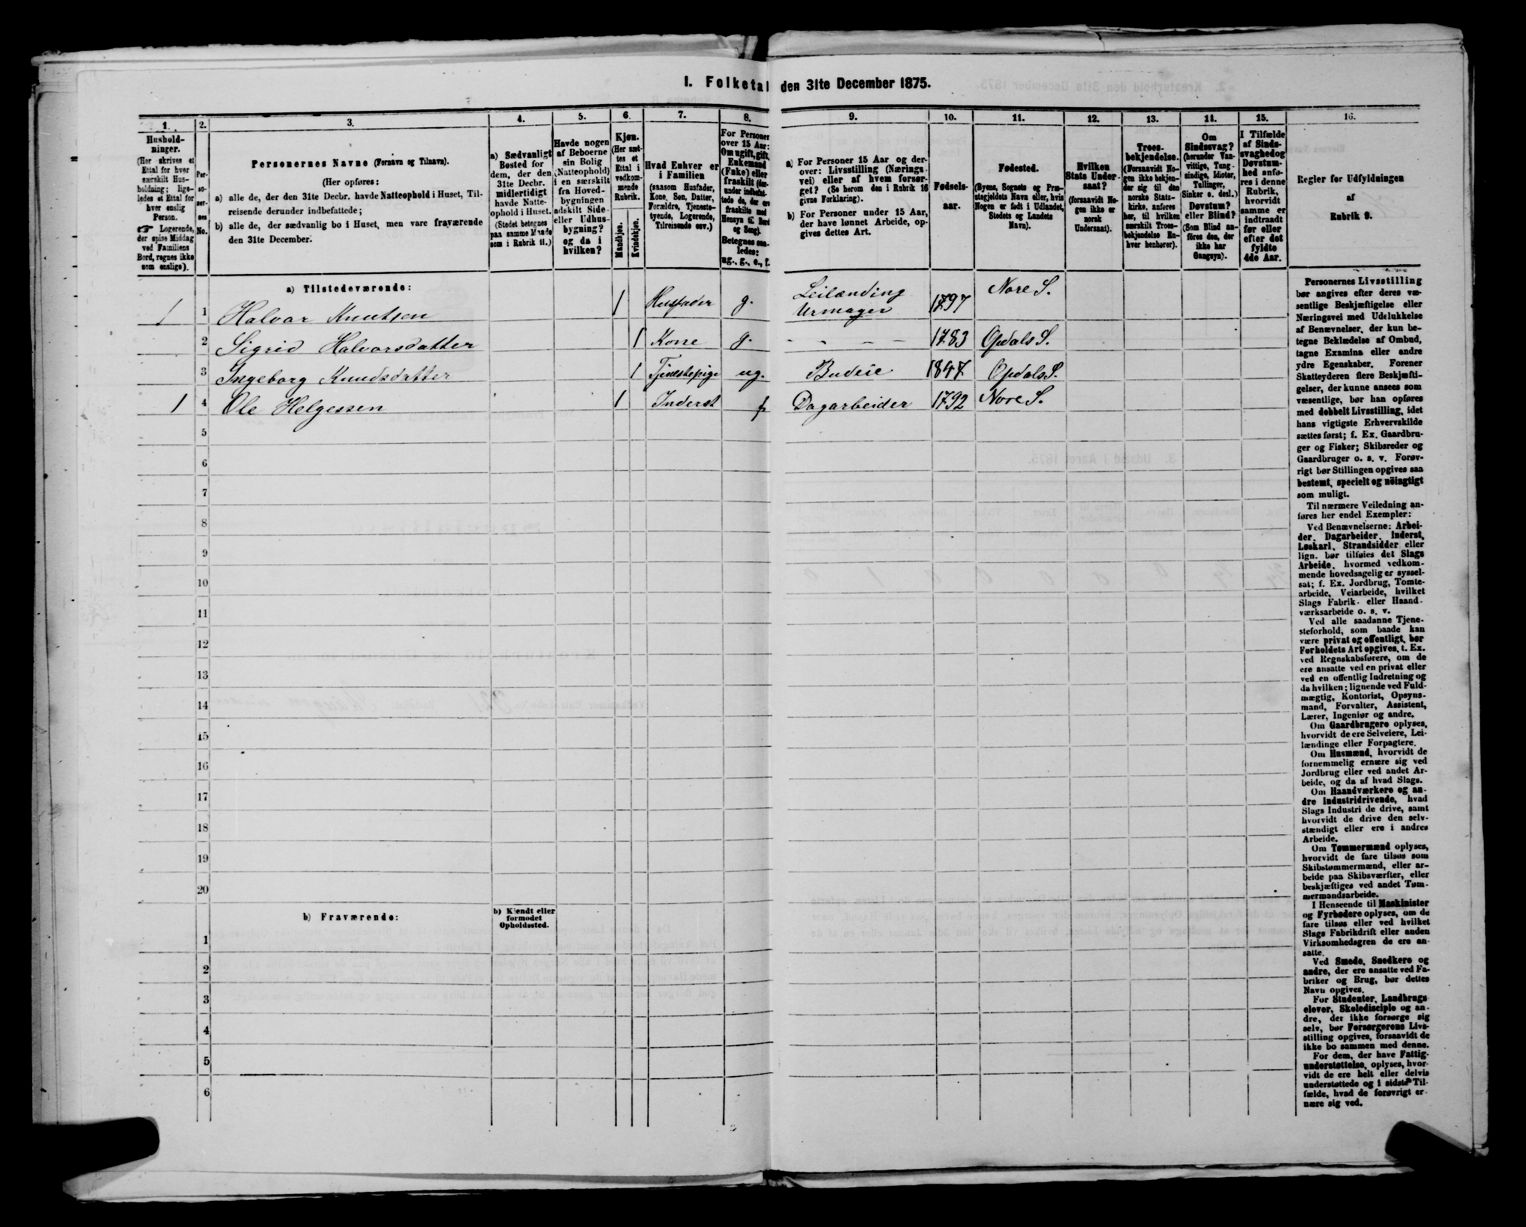 I. Folketal den 31te December 1875.
1.
Husholdninger.
(Her skrives et
Ettal for hver
særskilt Husholdning;
ligeledes et Ettal for
hver enslig
Person.
☞ Logerende,
der spise Middag
ved Familiens
Bord, regnes ikke
som enslige).
2.
Personernes
No.
3.
Personernes Navne (Fornavn og Tilnavn).
(Her opføres:
a) alle de, der den 31te Decbr. havde Natteophold i Huset, Tilreisende
derunder indbefattede;
b) alle de, der sædvanlig bo i Huset, men vare fraværende
den 31te December.
4.
a) Sædvanligt
Bosted for
dem, der den
31te Decbr.
midlertidigt
havde Natteophold
i Huset.
(Stedet betegnes
paa samme Maade
som i Rubrik 11.)
5.
Havde nogen
af Beboerne
sin Bolig
(Natteophold)
i en særskilt
fra Hovedbygningen
adskilt Side-
eller Udhusbygning?
og da i
hvilken?
6.
Kjøn.
(Her sættes
et
Ettal i
vedkommende
Rubrik.
Mandkjøn.
Kvindekjøn.
7.
Hvad Enhver er
i Familien
(saasom Husfader,
Kone, Søn, Datter,
Forældre, Tjenestetyende,
Logerende,
Tilreisende osv.)
8.
For Personer
over 15 Aar:
Om ugift, gift,
Enkemand
(Enke) eller
fraskilt
Betegnes saaledes:
ug., g., e., f.
9.
a) For Personer 15 Aar og derover:
Livsstilling (Næringsvei)
eller af hvem forsørget?
(Se herom den i Rubrik 16
givne Forklaring).
b) For Personer under 15 Aar,
der have lønnet Arbeide, opgives
dettes Art.
10.
Fødselsaar.
11.
Fødested.
(Byens, Sognets og Præstegjeldets
Navn eller, hvis
Nogen er født i Udlandet,
Stedets og Landets
Navn).
12.
Hvilken
Stats Undersaat?
(forsaavidt Nogen
ikke er
norsk
Undersaat).
13.
Troesbekjendelse.
(Forsaavidt Nogen
ikke bekjender
sig til den
norske Statskirke,
anføres
her, til hvilken
særskilt Troesbekjendelse
Enhver
henhører).
14.
Om
Sindssvag?
(herunder Vanvittige,
Tungsindige,
Idioter,
Tullinger,
Sinker o. desl.)
Døvstum?
eller Blind?
(Som Blind anføres
den, der
ikke har
Gangsyn).
15.
I Tilfælde
af Sindssvaghed
og
Døvstumhed
anføres
i denne
Rubrik,
hvorvidt
samme er
indtraadt
før eller
efter det
fyldte
4de Aar.
16.
Regler for Udfyldningen
af
Rubrik 9.
a) Tilstedeværende:
1 1 Halvor Knutsen 1 Husfader g. Leilænding Urmager 1797 Nore S.
2 Sigrid Halvorsdatter 1 Kone g. - - - - 1783 Opdals S.
3 Ingeborg Knudsdatter 1 Tjenestepige ug. Budeie 1847 Opdals S.
1 4 Ole Helgessen 1 Inderst f Dagarbeider 1792 Nore S.
5
6
7
8
9
10
11
12
13
14
15
16
17
18
19
20
b) Fraværende:
b) Kjendt eller
formodet
Opholdssted.
1
2
3
4
5
6
Personernes Livsstilling
bør angives efter deres væsentlige
Beskjæftigelse eller
Næringsvei med Udelukkelse
af Benævnelser, der kun betegne
Beklædelse af Ombud,
tagne Examina eller andre
ydre Egenskaber. Forener
Skatteyderen flere Beskjæftigelser,
der kunne ansees som
væsentlige, bør han opføres
med dobbelt Livsstilling, idet
hans vigtigste Erhvervskilde
sættes først; f. Ex. Gaardbruger
og Fisker; Skibsreder og
Gaardbruger o. s. v. Forøvrigt
bør Stillingen opgives saa
bestemt, specielt og nøiagtigt
som muligt.
Til nærmere Veiledning anføres
her endel Exempler:
Ved Benævnelserne: Arbeider,
Dagarbeider, Inderst,
Løskarl, Strandsidder eller
lign. bør tilføies det Slags
Arbeide, hvormed vedkommende
hovedsagelig er sysselsat;
f. Ex. Jordbrug, Tomtearbeide,
Veiarbeide, hvilket
Slags Fabrik- eller Haandværksarbeide
o. s. v.
Ved alle saadanne Tjenesteforhold,
som baade kan
være privat og offentligt, bør
Forholdets Art opgives, t. Ex.
ved Regnskabsførere, om de
ere ansatte ved en privat eller
ved en offentlig Indretning og
da hvilken; lignende ved Fuldmægtig,
Kontorist, Opsynsmand,
Forvalter, Assistent,
Lærer, Ingeniør og andre.
Om Gaardbrugere oplyses,
hvorvidt de ere Selveiere, Leilændinge
eller Forpagtere.
Om Husmænd, hvorvidt de
fornemmelig ernære sig ved
Jordbrug eller ved andet Arbeide,
og da af hvad Slags.
Om Haandværkere og andre
Industridrivende, hvad
Slags Industri de drive, samt
hvorvidt de drive den selvstændigt
eller ere i andres
Arbeide.
Om Tømmermænd oplyses,
hvorvidt de fare tilsøs som
Skibstømmermænd, eller arbeide
paa Skibsværfter, eller
beskjæftiges ved andet Tømmermandsarbeide.
I Henseende til Maskinister
og Fyrbødere oplyses, om de
fare tilsøs eller ved hvilket
Slags Fabrikdrift eller anden
Virksomhedsgren de ere ansatte.
Ved Smede, Snedkere og
andre, der ere ansatte ved Fabriker
og Brug, bør dettes
Navn opgives.
For Studenter, Landbrugselever,
Skoledisciple og andre,
der ikke forsørge sig
selv, bør Forsørgerens Livsstilling
opgives, forsaavidt de
ikke bo sammen med denne.
For dem, der have Fattigunderstøttelse,
oplyses, hvorvidt
de ere helt eller delvis
understøttede og i sidste Tilfælde,
hvad de forøvrigt ernære
sig ved.